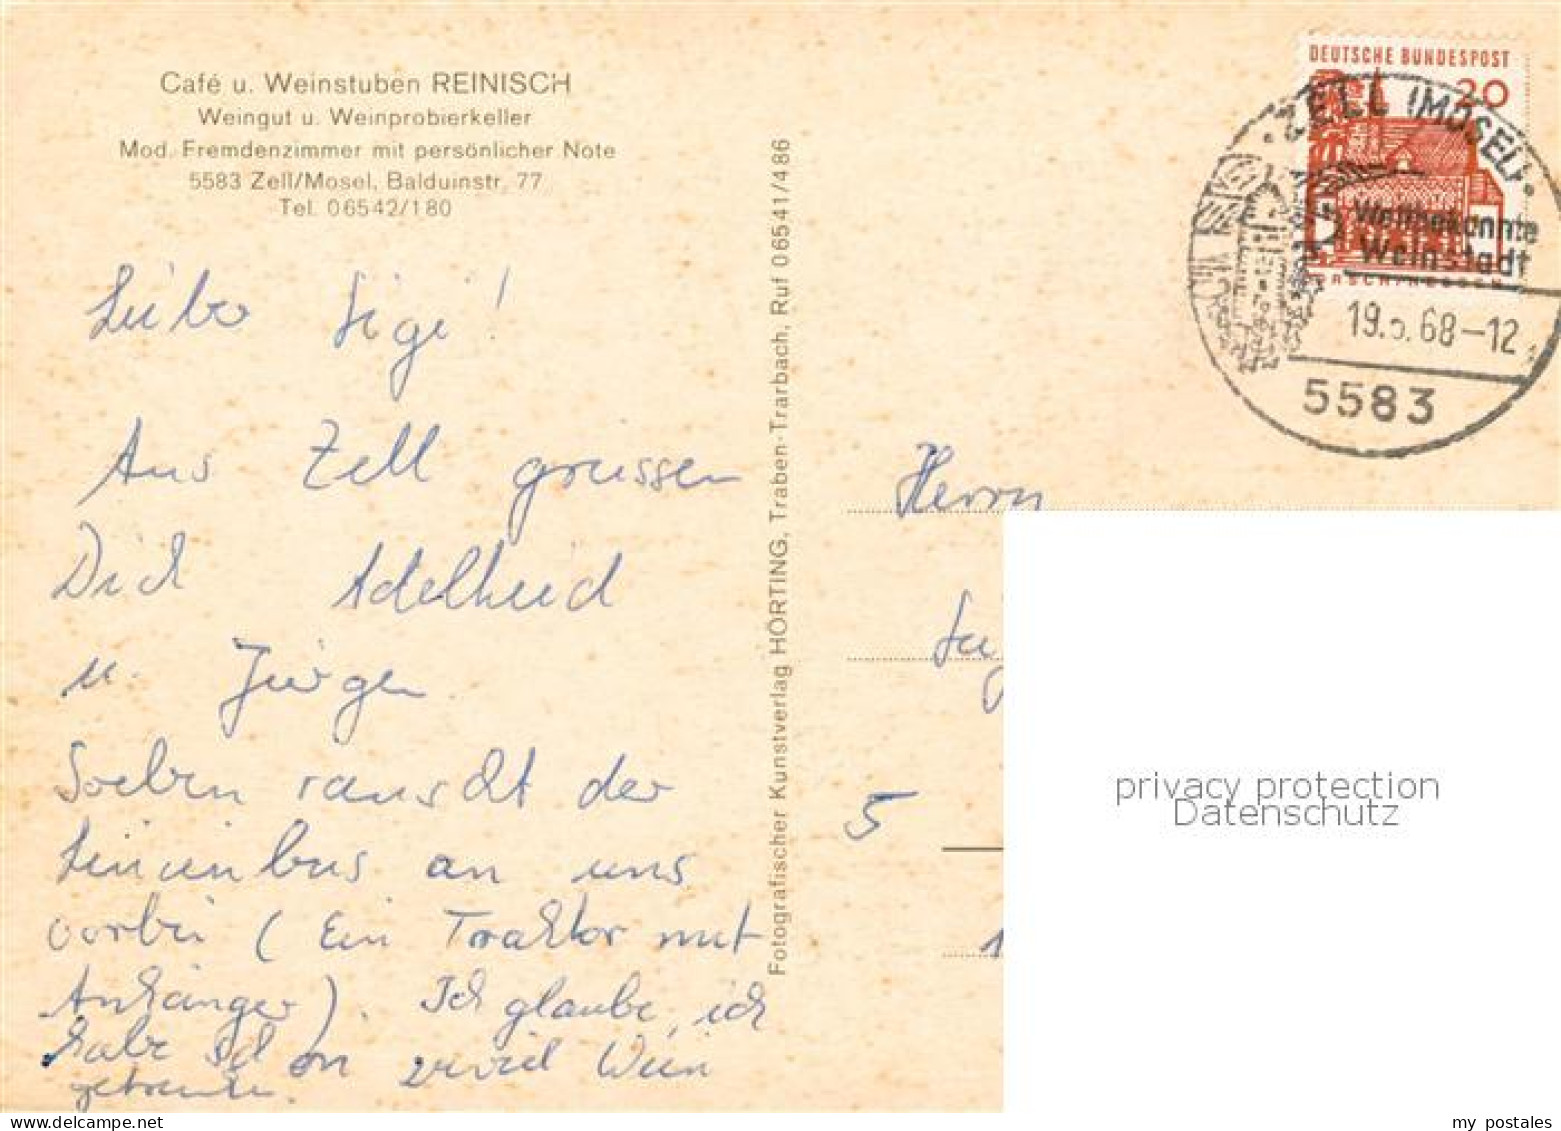 Café u. Weinstuben REINISCH
Weingut u. Weinprobierkeller
Mod. Fremdenzimmer mit persönlicher Note
5583 Zell/Mosel, Balduinstr. 77
Tel. 06542/180
Lieber Sigi!
Aus Zell grussen
Dich Adelheid
u. Jürgen
Soeben rauscht der
Linienbus an uns
vorbei (Ein Traktor mit
Anhänger). Ich glaube, ich
habe schon zuviel Wein
getrunken.
Fotografischer Kunstverlag HÖRTING, Traben-Trarbach, Ruf 06541/486
DEUTSCHE BUNDESPOST
20
ZELL (MOSEL)
Weltbekannte
Weinstadt
19.5.68-12
5583
Herrn
5
privacy protection
Datenschutz
my postales